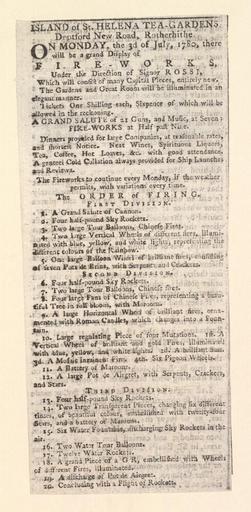 ISLAND of St. HELENA TEA-GARDENS.
Deptford New Road, Rotherhithe.
ON MONDAY, the 3d of July, 1780, there
will be a grand Display of
FIRE-WORKS,
Under the Direction of Signor ROSSI,
Which will consist of many Capital Pieces, entirely new.
The Gardens and Great Room will be illuminated in an
elegant manner.
Tickets One Shilling each, Sixpence of which will be
allowed in the reckoning.
A GRAND SALUTE of 21 Guns, and Music, at Seven;
FIRE-WORKS at Half past Nine.
Dinners provided for large Companies, at reasonable rates,
and shortest Notice. Neat Wines, Spirituous Liquors,
Tea, Coffee, Hot Loaves, &c. with good attendance.
A general Cold Collation always provided for Ship Launches
and Reviews.
The Fireworks to continue every Monday, if the weather
permits, with variations every time.
The ORDER of FIRING.
FIRST DIVISION.
1. A Grand Salute of Cannons.
2. Four half-pound Sky Rockets.
3. Two large Tour Balloons, Chinese Fires.
4. Two large Vertical Wheels of different fires, illumi-
nated with blue, yellow, and white lights, representing the
different colours of the Rainbow.
5. One large Balloon Wheel of brilliant fires, consisting
of seven Pots de Brins, with Serpents and Crackers.
SECOND DIVISION.
6. Four half-pound Sky Rockets.
7. Two large Tour Balloons, Chinese fires.
8. Four large Fans of Chinese Fires, representing a beau-
tiful Tree in full bloom, with Maroons.
9. A large Horizontal Wheel of brilliant fires, orna-
mented with Roman Candles, which changes into a Foun-
tain.
10. Large regulating Piece of four Mutations. 1st. A
Vertical Wheel of brilliant and gold Fires, illuminated
with blue, yellow, and white lights. 2d. A brilliant Sun.
3d. A Mosaic brilliant Fire. 4th. Six Figured Wheels.
11. A Battery of Maroons.
12. A large Pot de Aigret, with Serpents, Crackers,
and Stars.
THIRD DIVISION.
13. Four half-pound Sky Rockets.
14. Two large Transparent Pieces, changing six different
times, of beautiful colours, embellished with twenty-four
fires, and a battery of Maroons.
15. Six Water Fountains, discharging Sky Rockets in the
air.
16. Two Water Tour Balloons.
17. Twelve Water Rockets.
18. A grand Piece of a G R, embellished with Wheels
of different Fires, illuminated.
19. A discharge of Pot de Aigret.
20. Concluding with a Flight of Rockets.